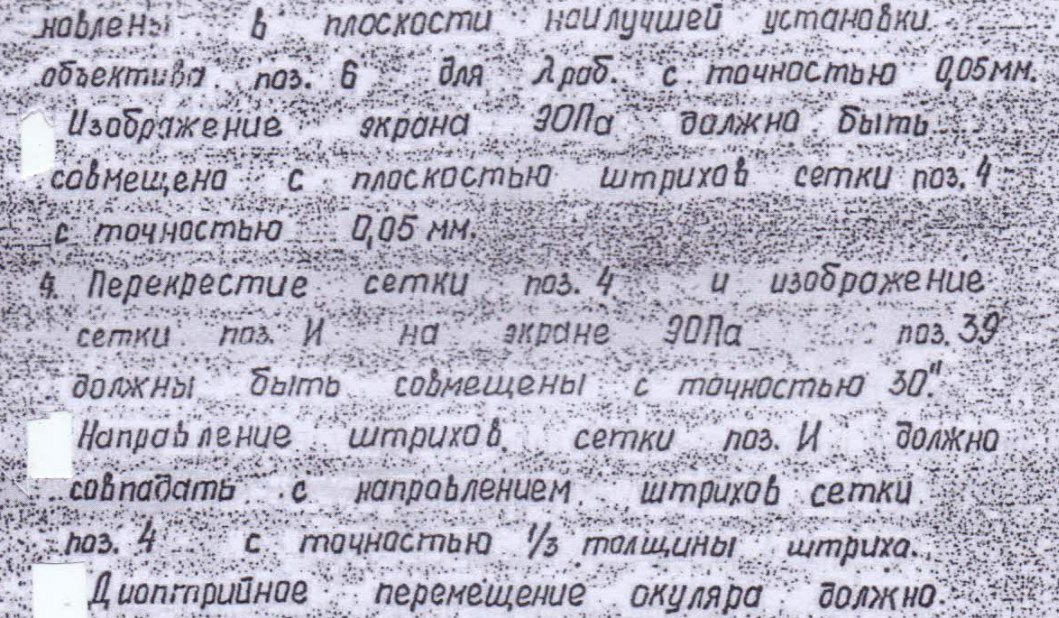 новлены в плоскости наилучшей установки
объектива поз. 6 для λ раб. с точностью 0,05мм.
Изображение экрана ЭОПа должно быть
совмещено с плоскостью штрихов сетки поз. 4
с точностью 0,05 мм.
4. Перекрестие сетки поз. 4 и изображение
сетки поз. И на экране ЭОПа поз. 39
должны быть совмещены с точностью 30".
Направление штрихов сетки поз. И должно
совпадать с направлением штрихов сетки
поз. 4 с точностью 1/3 толщины штриха.
Диоптрийное перемещение окуляра должно